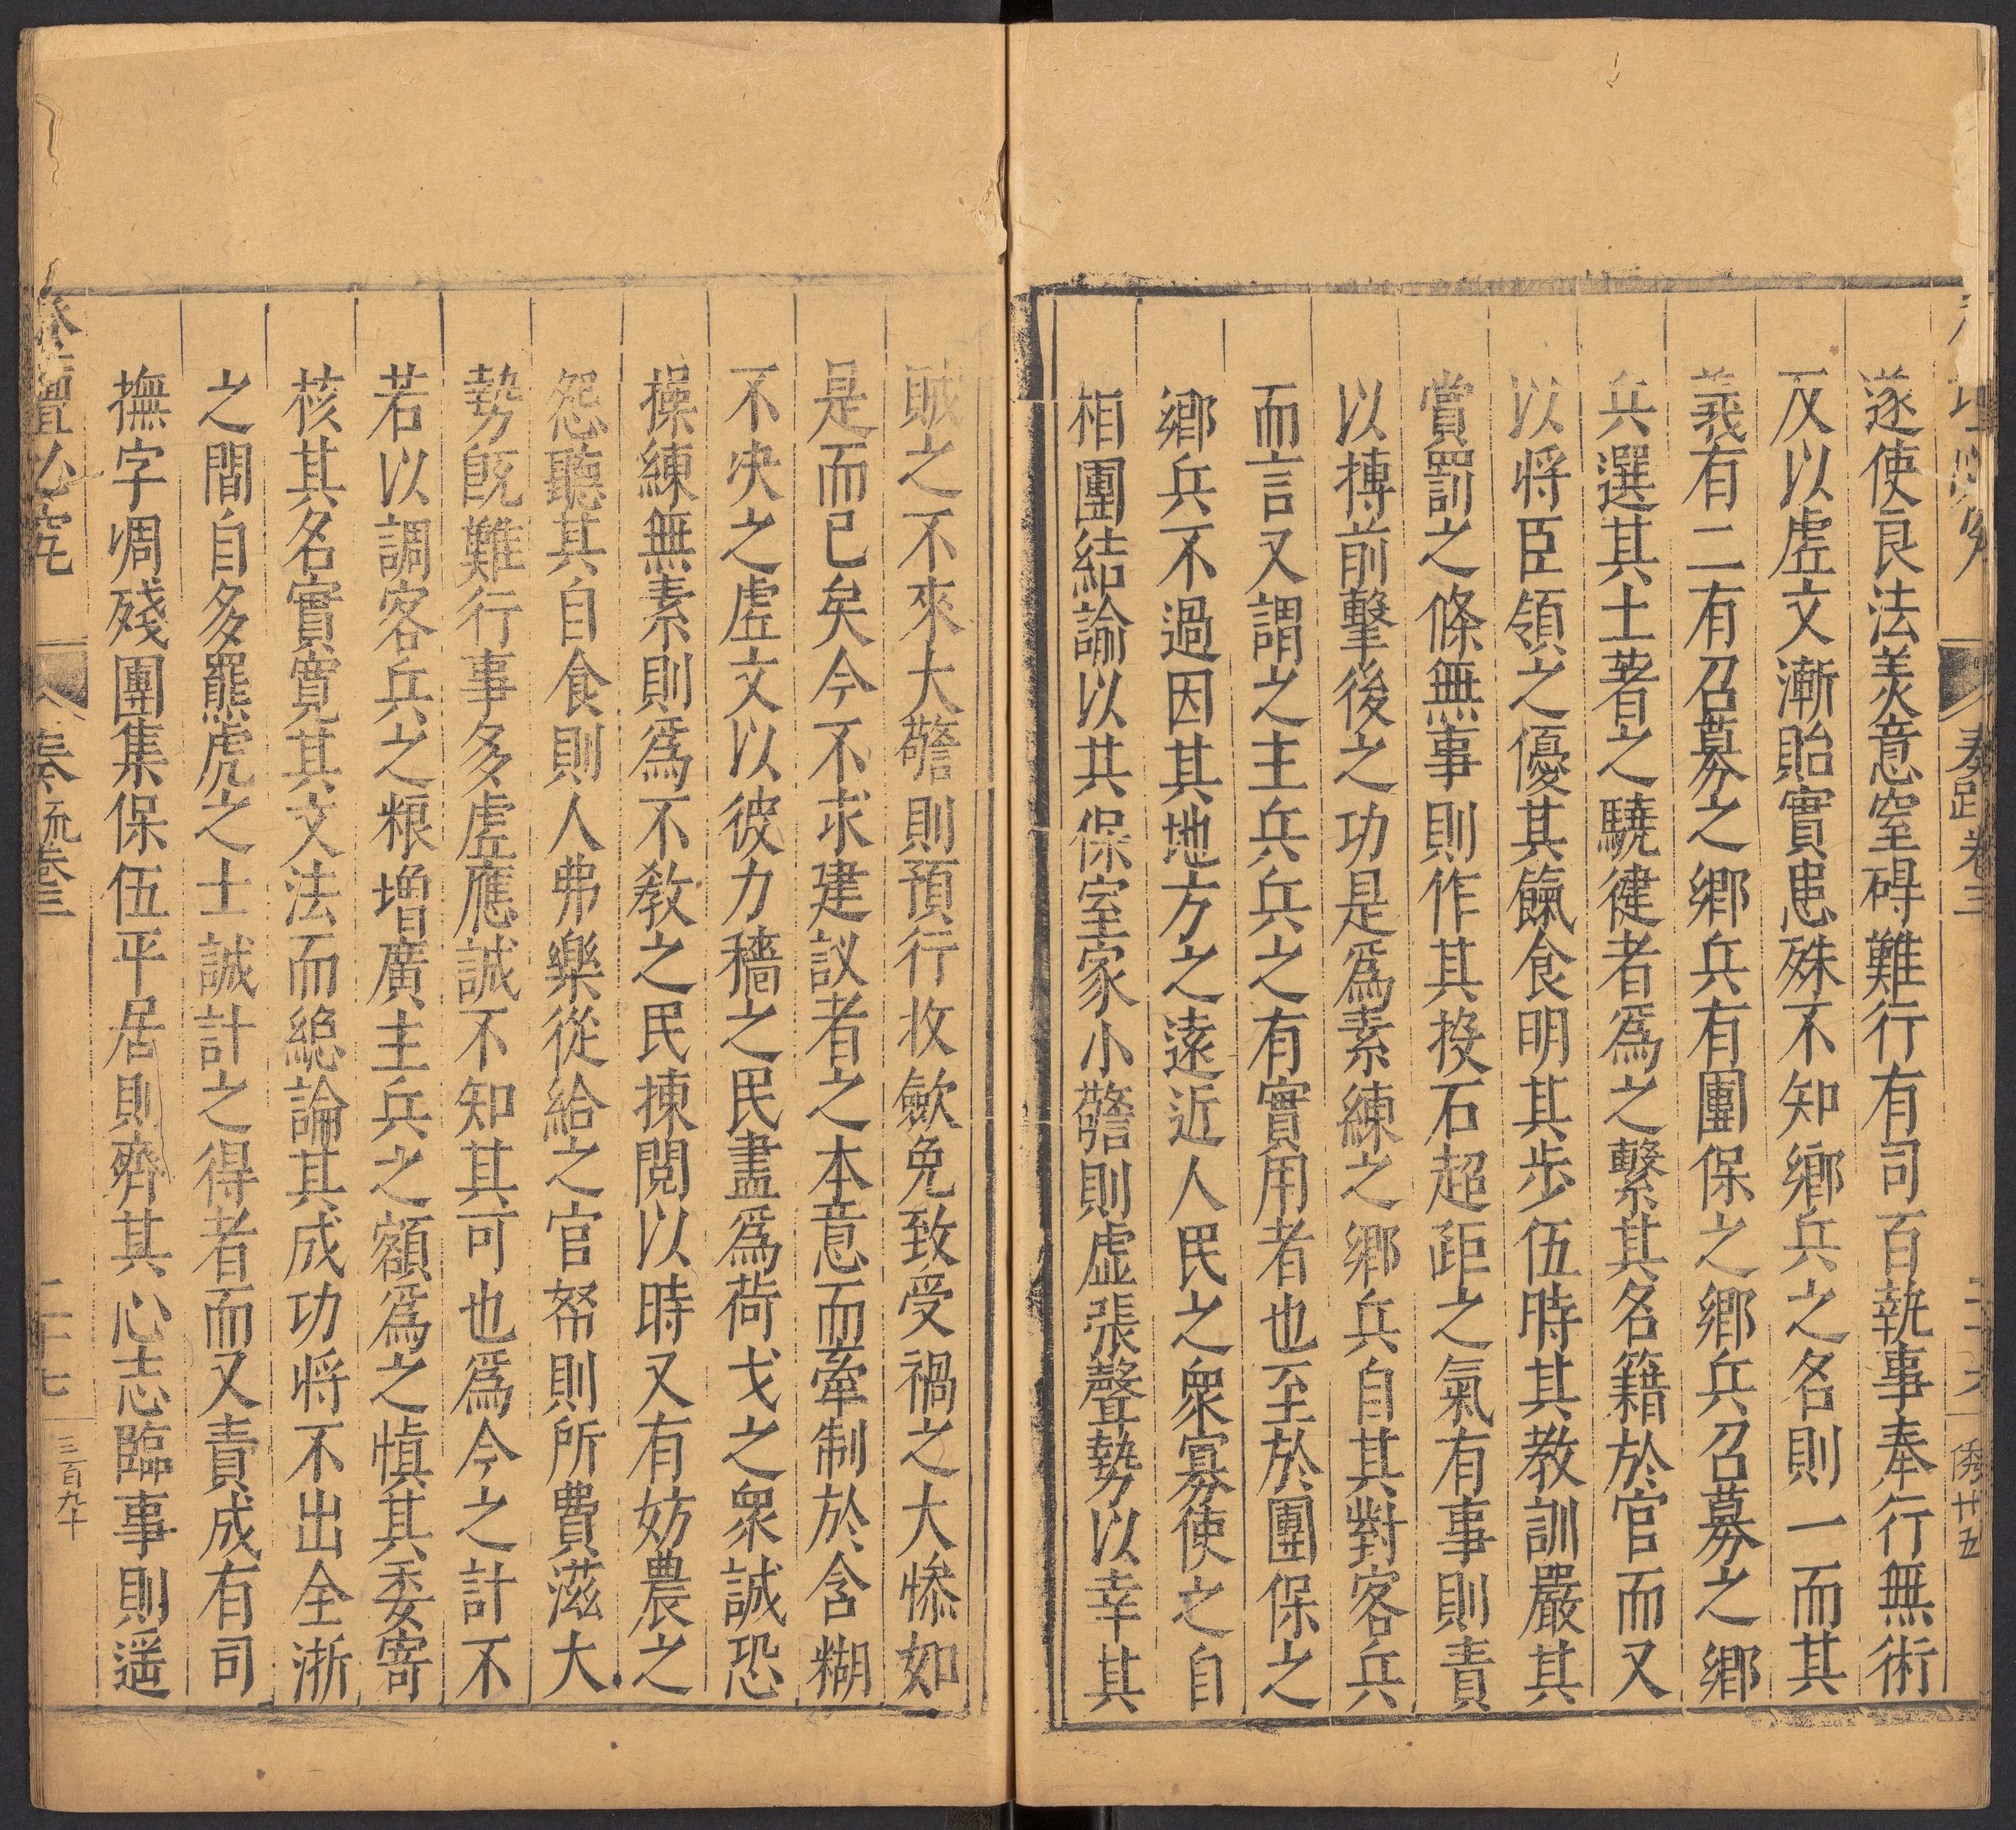 奏䟽卷三
遂使良法美意窒碍難行有司百執事奉行無術
反以虗文漸貽實患殊不知鄉兵之名則一而其
義有二有召募之鄉兵有團保之鄉兵召募之鄉
兵選其土著之驍健者爲之繫其名籍於官而又
以将臣領之優其餼食明其步伍時其教訓嚴其
賞罰之條無事則作其投石超距之氣有事則責
以摶前擊後之功是爲素練之鄉兵自其對客兵
而言又謂之主兵兵之有實用者也至於團保之
鄉兵不過因其地方之遠近人民之衆寡使之自
相團結諭以共保室家小警則虚張聲勢以幸其
賊之不來大警則預行收歛免致受禍之大慘如
是而已矣今不求建議者之本意而牽制於含糊
不决之虗文以彼力穡之民盡爲荷戈之衆誠恐
操練無素則爲不敎之民揀閱以時又有妨農之
怨聽其自食則人弗樂從給之官帑則所費滋大
勢旣難行事多虗應誠不知其可也爲今之計不
若以調客兵之粮增廣主兵之額爲之慎其委寄
核其名實寛其文法而緫論其成功将不出全浙
之間自多羆虎之士誠計之得者而又責成有司
撫字凋殘團集保伍平居則齊其心志臨事則遥
奏疏卷三
二十七
三百九十